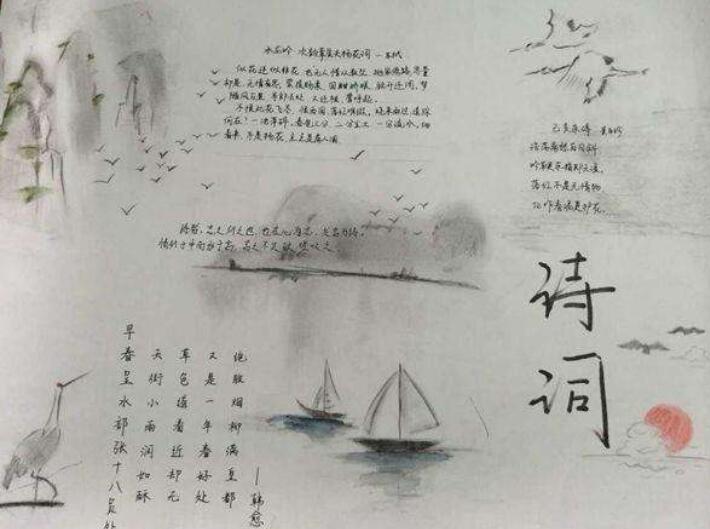 水龙吟 次韵章质夫杨花词 — 苏轼
似花还似非花,也无人惜从教坠,抛家傍路,思量
却是,无情有思,萦损柔肠,困酣娇眼,欲开还闭,梦
随风万里,寻郎去处,又还被,莺呼起。
不恨此花飞尽,恨西园,落红难缀,晓来雨过,遗踪
何在?一池萍碎,春色三分,二分尘土,一分流水,细
看来,不是杨花,点点是离人泪
己亥杂诗
浩荡离愁白日斜
吟鞭东指即天涯。
落红不是无情物
化作春泥更护花。
诗者,志之所之也,在心为志,发言为诗,
情动于中而形于言,言之不足
诗
词
早春呈水部张十八员外
天街小雨润如酥
草色遥看近却无
又是一年春好处
绝胜烟柳满皇都
—韩愈